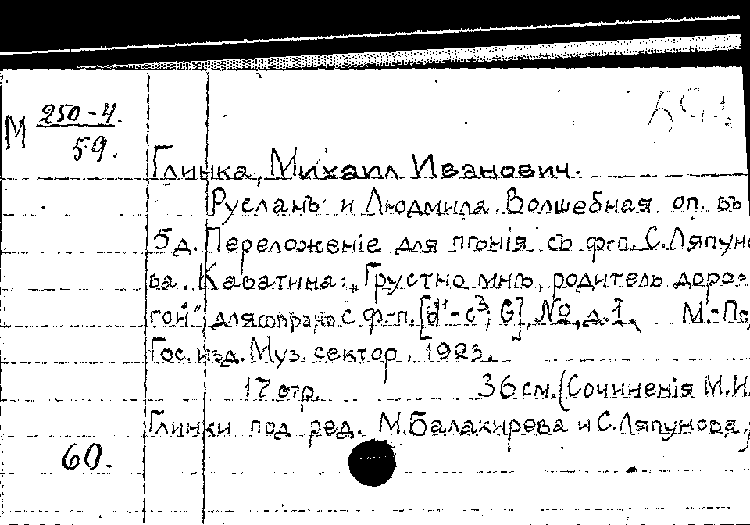 М 250-4.
59.
Глинка, Михаил Иванович.
Русланъ и Людмила. Волшебная оп. въ
5 д. Переложеніе для пѣнія съ ф-п. С. Ляпуно
ва. Каватина: „Грустно мнѣ, родитель доро-
гой", для сопрано с ф-п. [d'-c³; G], №2, д. I. М.-Пг
Гос. изд. Муз. сектор. 1923.
17 стр. 36 см. (Сочиненія М.И.
Глинки под ред. М. Балакирева и С. Ляпунова,
60.